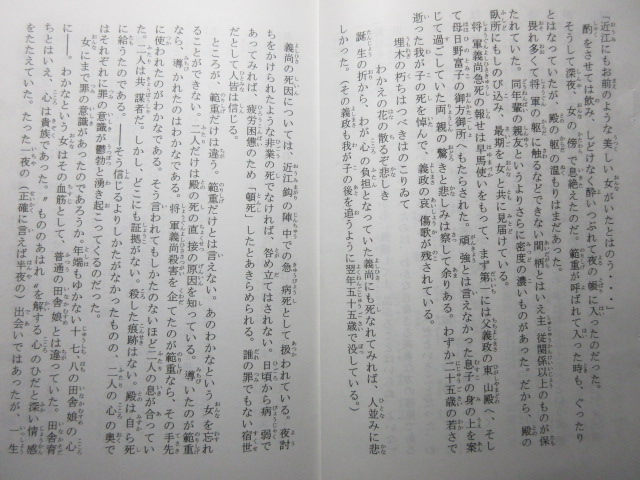 「近江にもお前のような美しい女がいたとはのう・・・
酌をさせては飲み、しどけなく酔いつぶれて夜の帳に入ったのだった。
そうして深夜、女の傍で息絶えたのだ。範重が呼ばれて入った時も、ぐったり
とはなっていたが、殿の躯の温もりはまだあった。
畏れ多くて将軍の躯に触るなどできない間柄とはいえ主従関係以上のものが保
たれていた。同年輩の親友というよりさらに密度の濃いものがあった。だから、殿の
臥所にもしのび込み、最期を女と共に見届けている。
将軍義尚急死の報せは早馬使いをもって、まず第一には父義政の東山殿へ、そし
て母日野富子の御所へもたらされた。頑強とは言えなかった息子の身の上を案
じて過ごしていた両親の驚きと悲しみは察して余りある。わずか二十五歳の若さで
逝った我が子の死を悼んで、義政の哀傷歌が残されている。
埋木の朽ちはつべきはのこりゐて
わかえの花の散るぞ悲しき
誕生の折から、わが心の負担となっていた義尚にも死なれてみれば、人並みに悲
しかった。(その義政も我が子の後を追うように翌年五十五歳で没している。)
義尚の死因については、近江鈎の陣中での急病死として扱われている。夜討
ちをかけられたような非業の死でなければ、咎め立てはされない。日頃から病弱で
あってみれば、疲労困憊のため「頓死」したとあきらめられる。誰の罪でもない宿世
だとして人皆は信じる。
ところが、範重だけは違う。範重だけとは言えない。あのわかなという女を忘れ
ることができない。二人だけは殿の死の直接の原因を知っている。導いたのが範重
なら、導かれたのはわかなである。将軍義尚殺害を企てたのが範重なら、その手先
に使われたのがわかなである。そう言われてもしかたのないほど二人の息が合ってい
た。二人は共謀者だ。しかし、どこにも証拠がない。殺した痕跡はない。殿は自ら死
に給うたのである。――そう信じるよりしかたがなかったものの、二人の心の奥で
はそれぞれに罪の意識が鬱勃と湧き起こってくるのだった。
女にまで罪の意識があったのであろうか。年端もゆかない十七、八の田舎娘の心
に――。わかなという女はその血筋として、普通の田舎娘とは違っていた。田舎育
ちとはいえ、心は貴族であった。〝もののあはれ〟を解する心のひだと深い情感
をたたえていた。たった一夜の(正確に言えば半夜の)出会いではあったが、一生